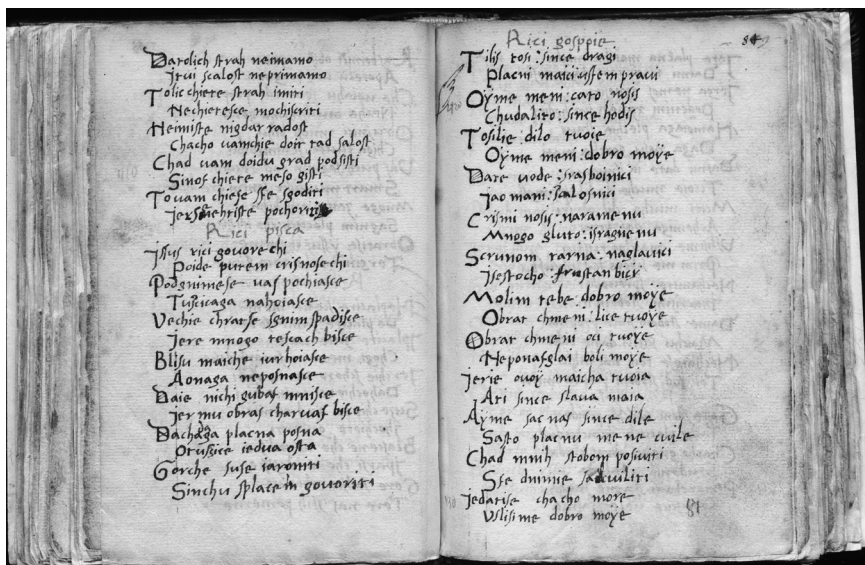 Datolich strah neimamo
Itui scalost neprimamo
Tolic chiete strah imiti
Nechietesce mochiscriti
Neimiste nigdar radost
Chacho vamchie doit tad salost
Chad vam doidu grad podsisti
Sinof chiete meso gisti
Tovam chiese sfe sgoditi
Jerse
Rici pisca
Issus rici govorechi
Poide putem crisnosechi
Podgnimese vas pochiasce
Tuscicaga nahoiasce
Vechie chratse sgnim spadisce
Jere mnogo tescach bisce
Blisu maiche iurhoiasce
Aonaga neposnasce
Daie nichi gubaf mnisce
Jer mu obras charvaf bisce
Dachaga placna posna
Otuscice iedua osta
Gorche suse iaroniti
Sinchu splacem govoriti
Rici gosppie
849
Tilis tosi : since dragi
Placni maici cistem pravi
Oyme meni : cato nosis
Chudalito : since hodis
Tosilie : dilo tvoie
Oyme meni : dobro moye
Date vode : srasboinici
Jao mani : scalosnici
Crismi nosis : naramenu
Mnogo gluto : isragnenu
Scrunom tarna : naglavici
Isestocho : frustan bici
Molim tebe : dobro moye
Obrat chmeni : lice tvoye
Obrat chmeni oci tvoye
Neponafglai boli moye
Jerie ovoy maicha tvoia
Ati since slava maia
Ayme sac nas since dile
Sasto placnu mene cvile
Chad mnih stobom posiviti
Sfe dnimie
Jedatise chacho more
Uslisi me dobro moye